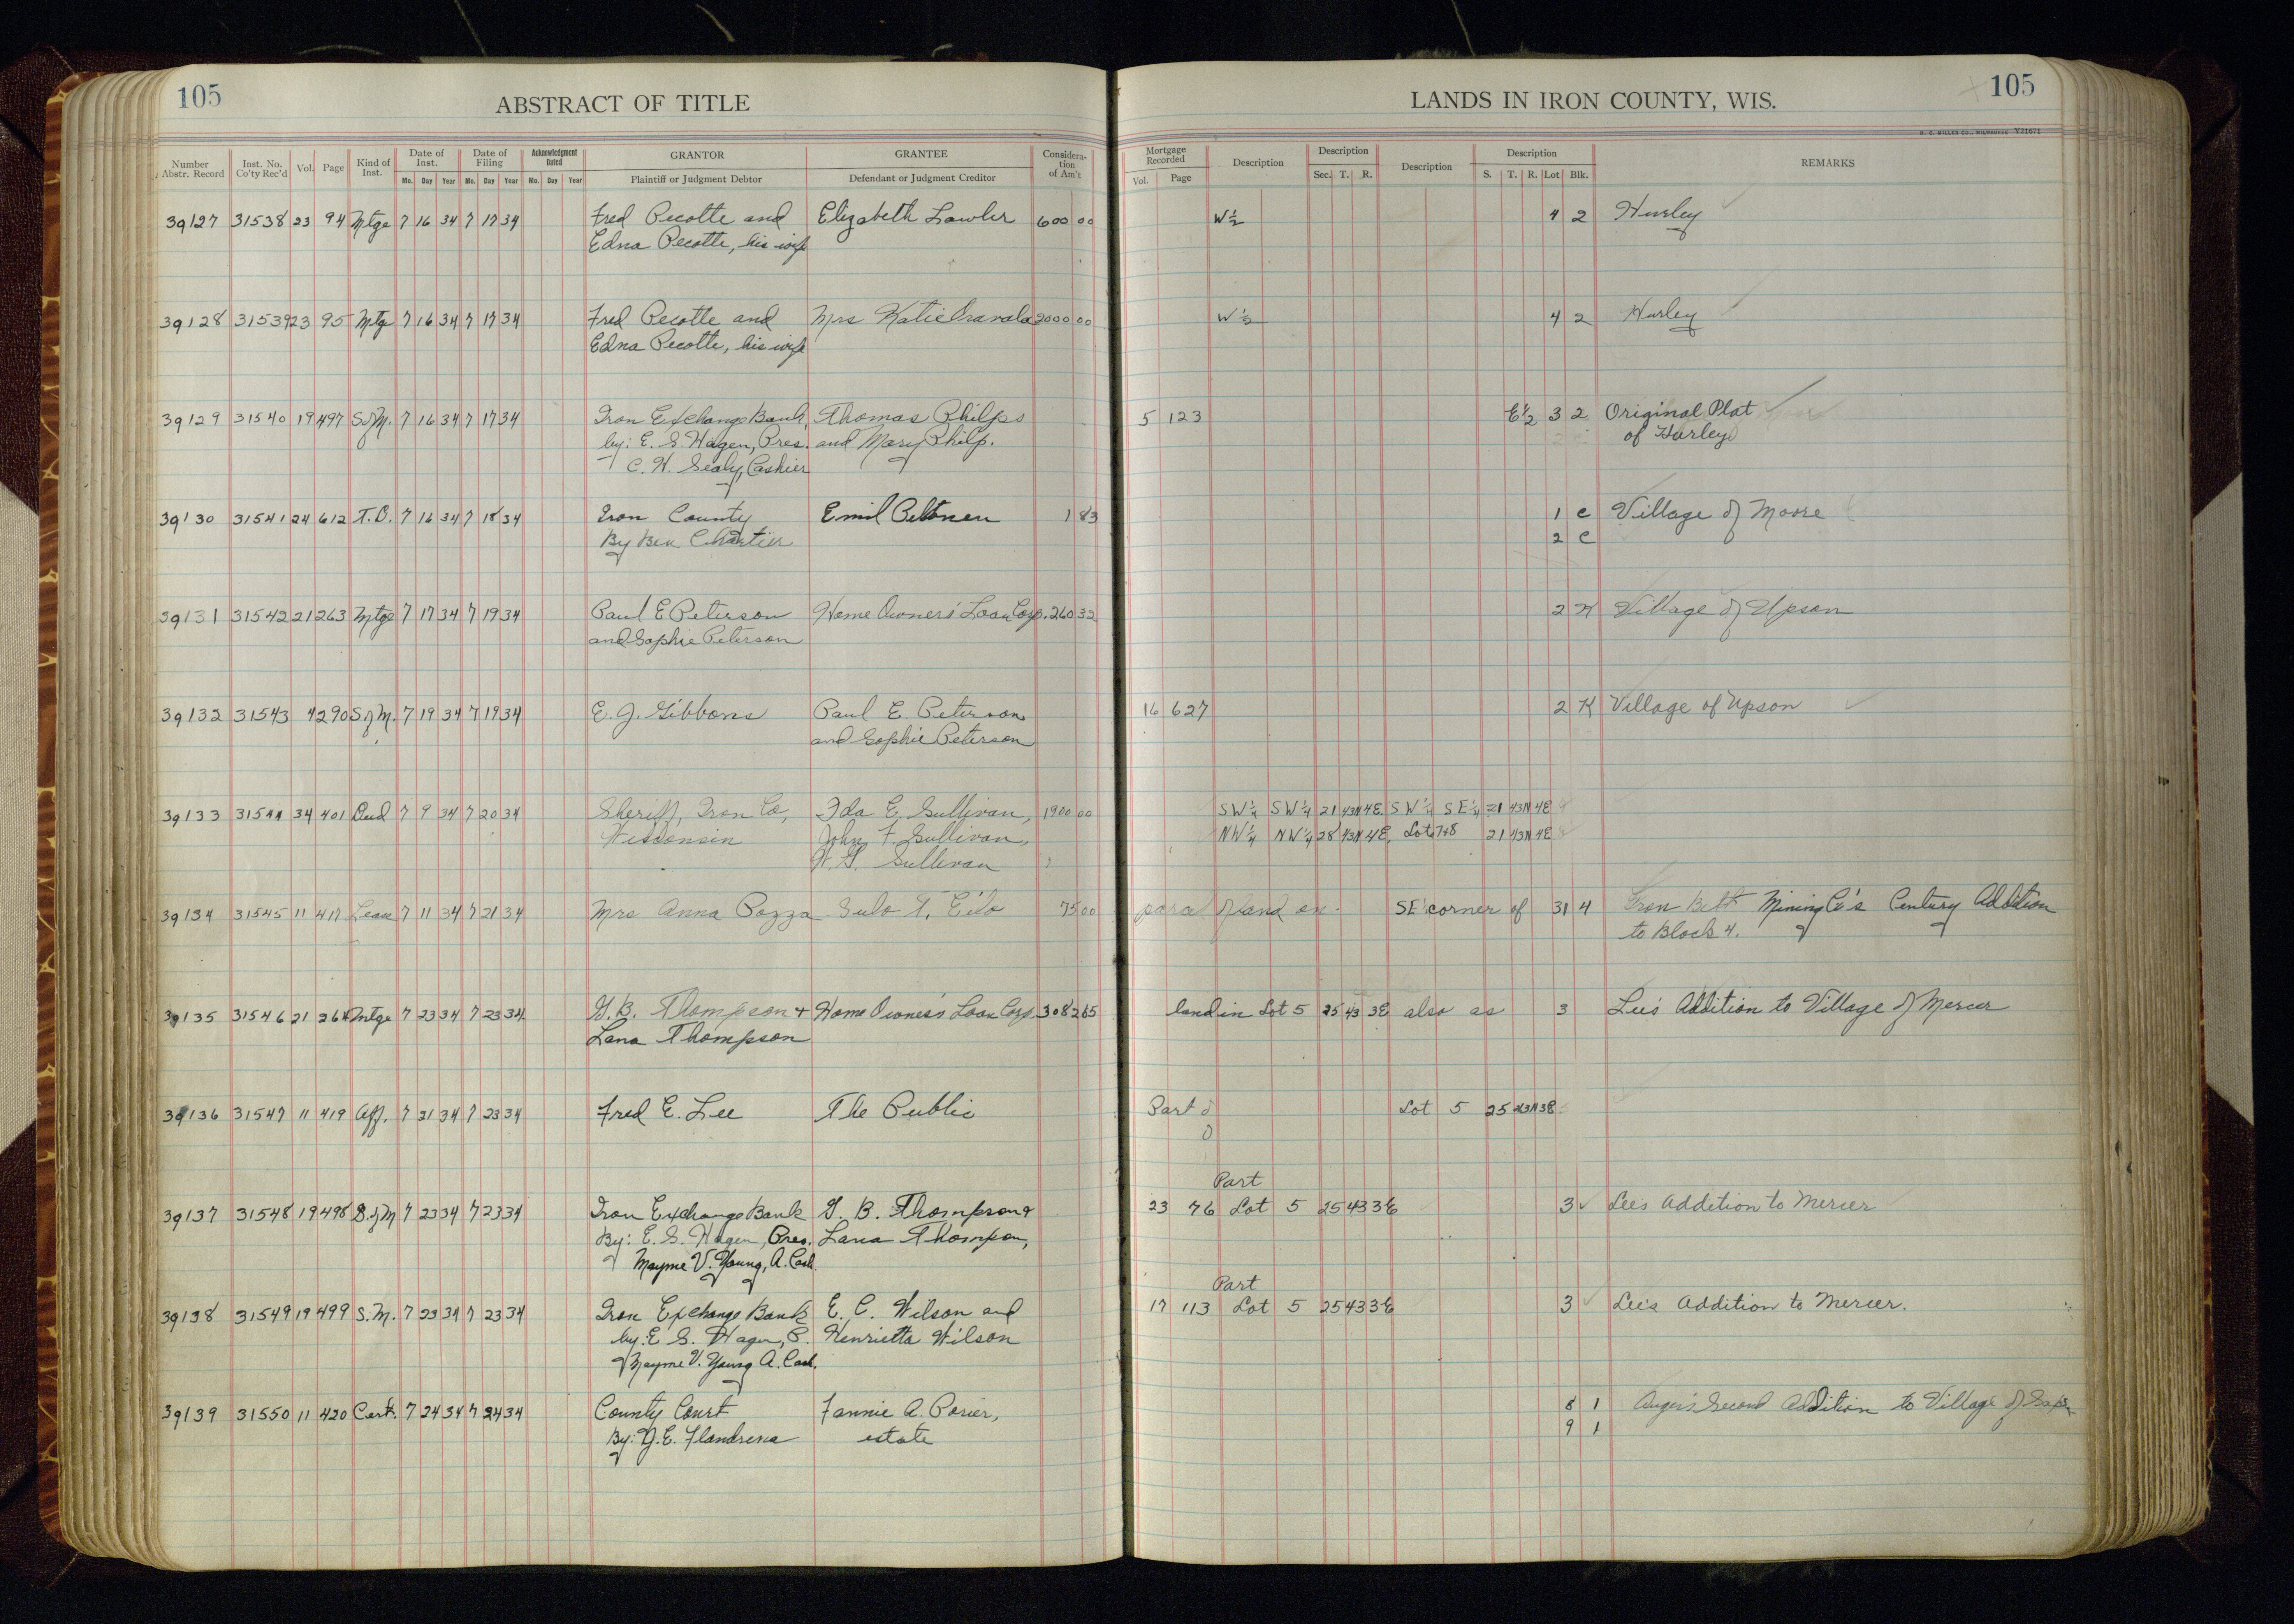 105
ABSTRACT OF TITLE
LANDS IN IRON COUNTY, WIS.
105
H. C. MILLER CO., MILWAUKEE Y21671
Number Abstr. Record Inst. No. Co'ty Rec'd Vol. Page Kind of Inst. Date of Inst. Mo. Day Year Date of Filing Mo. Day Year Acknowledgment Dated Mo. Day Year GRANTOR Plaintiff or Judgment Debtor GRANTEE Defendant or Judgment Creditor Considera- tion of Am't
Mortgage Recorded Vol. Page Description Description Sec. T. R. Description Description S. T. R. Lot Blk. REMARKS
39127 31538 23 94 Mtge 7 16 34 7 17 34 Fred Pecotte and Elizabeth Lawler 600 00 W½ 4 2 Hurley
Edna Pecotte, his wife
39128 31539 23 95 Mtge 7 16 34 7 17 34 Fred Pecotte and Mrs Katie 2000 00 W½ 4 2 Hurley
Edna Pecotte, his wife
39129 31540 19 497 S of M. 7 16 34 7 17 34 Iron Exchange Bank, Thomas Philps 5 123 E½ 3 2 Original Plat
by: E. S. Hagen, Pres. and Mary Philp. of Hurley
C. H. Sealy, Cashier
39130 31541 24 612 T.D. 7 16 34 7 18 34 Iron County Emil Peltonen 1 83 1 C Village of Moore
By Ben 2 C
39131 31542 21 263 Mtge 7 17 34 7 19 34 Paul E Peterson Home Owners' Loan Corp. 260 32 2 K Village of Upson
and Sophie Peterson
39132 31543 4 290 S of M. 7 19 34 7 19 34 E. J. Gibbons Paul E. Peterson 16 627 2 K Village of Upson
and Sophie Peterson
39133 31544 34 401 Deed 7 9 34 7 20 34 Sheriff, Iron Co, Ida E. Sullivan, 1900 00 SW¼ SW¼ 21 43N 4E. SW¼ SE¼ 21 43N 4E
Wisconsin John F. Sullivan, NW¼ NW¼ 28 43N 4E, Lot 7+8 21 43N 4E
Sullivan
39134 31545 11 417 Lease 7 11 34 7 21 34 Mrs Anna Pozza Sulo T. Eilo 75 00 parcel of land on SE corner of 31 4 Iron Belt Mining Co's Century Addition
to Block 4.
39135 31546 21 264 Mtge 7 23 34 7 23 34 G. B. Thompson + Home Owners Loan Corp. 3082 65 land in Lot 5 25 43 3E also as 3 Lee's Addition to Village of Mercer
Lana Thompson
39136 31547 11 419 Aff. 7 21 34 7 23 34 Fred E. Lee The Public Part of Lot 5 25 43N 3E
Part
39137 31548 19 498 S. of M 7 23 34 7 23 34 Iron Exchange Bank G. B. Thompson + 23 76 Lot 5 25 43 3E 3 Lee's Addition to Mercer
By: E. S. Hagen, Pres. Lana Thompson,
Mayme V. Young, A. Cash.
Part
39138 31549 19 499 S. M. 7 23 34 7 23 34 Iron Exchange Bank E. C. Wilson and 17 113 Lot 5 25 43 3E 3 Lee's Addition to Mercer.
by: E S. Hagen, P. Henrietta Wilson
+ Mayme V. Young A. Cash.
39139 31550 11 420 Cert. 7 24 34 7 24 34 County Court Fannie A. Porier, 8 1 Second Addition to Village of
By: estate 9 1